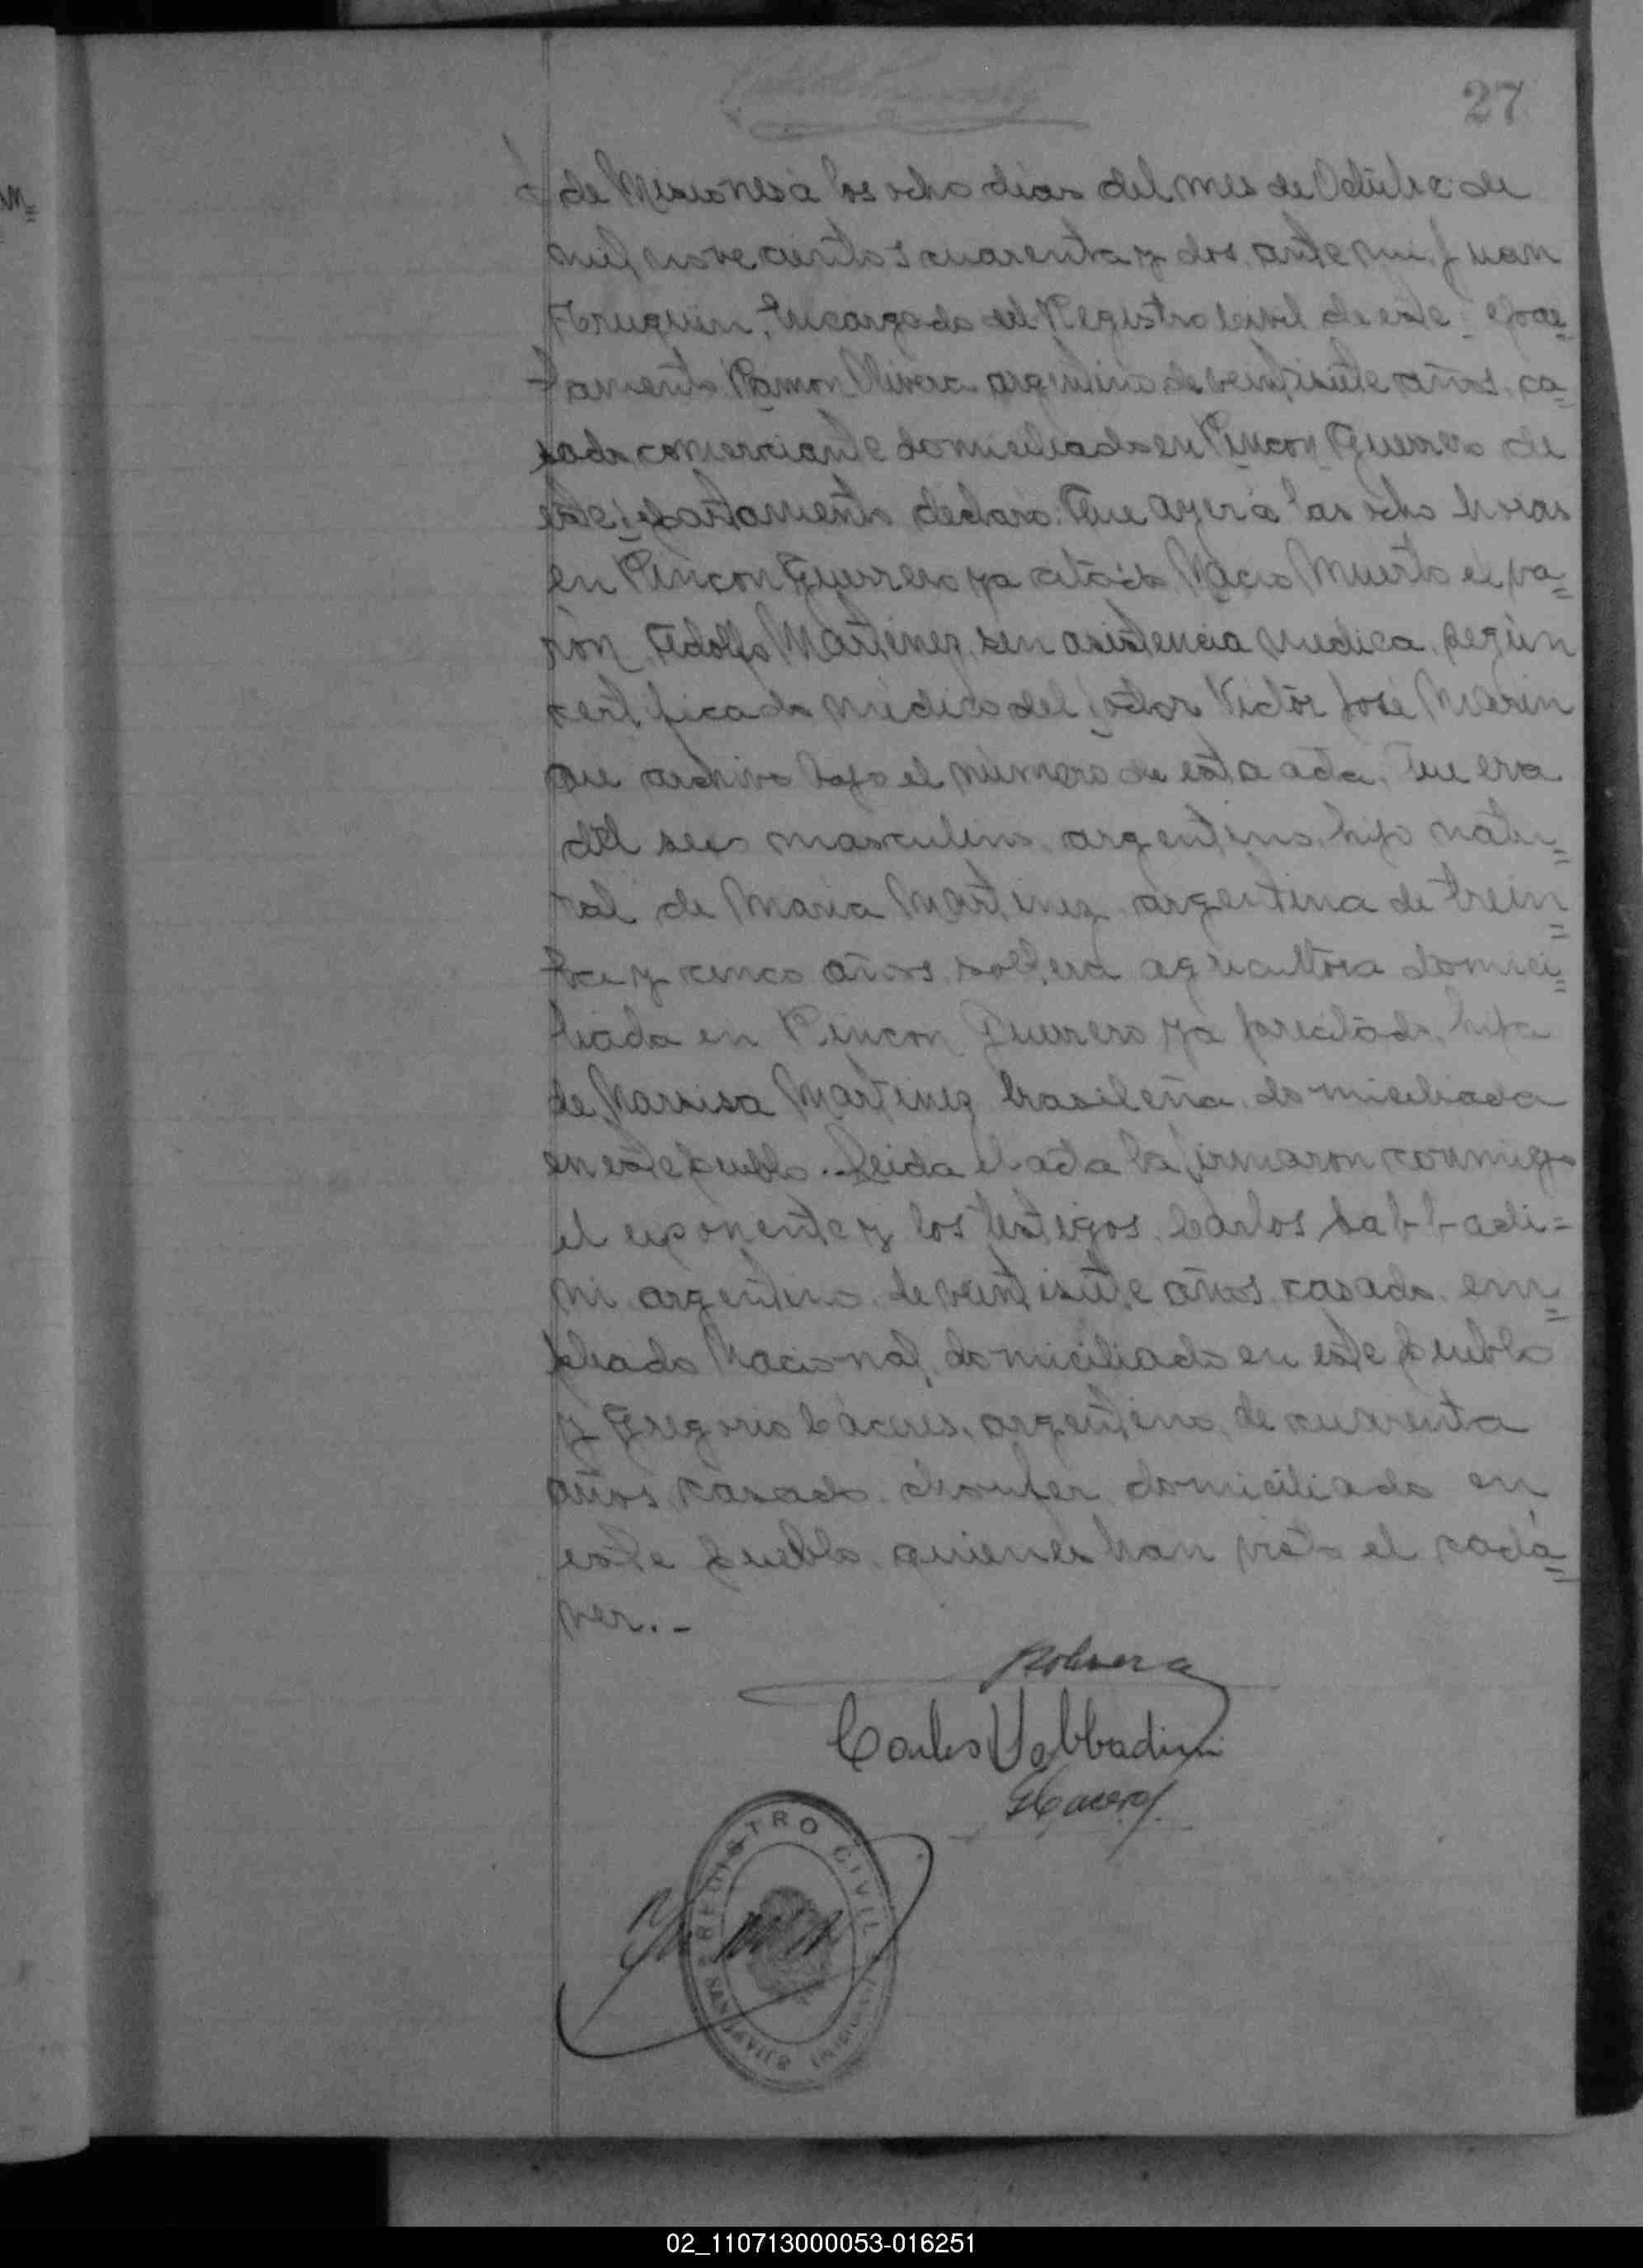 27
de Misiones a los ocho dias del mes de Octubre de
mil novecientos cuarenta y dos, ante mi, Juan
Encargado del Registro Civil de este Depar=
tamento Ramon Olivera argentino de veintisiete años, ca=
sado comerciante domiciliado en Rincon Guerrero de
este Departamento declaró: Que ayer a las ocho horas
en Rincon Guerrero ya citado Nació Muerto el va=
rón Adolfo Martinez, sin asistencia medica, según
certificado médico del Doctor Victor José Marin
que archivo bajo el número de esta acta. Que era
del sexo masculino, argentino, hijo natu=
ral de Maria Martinez argentina de trein=
ta y cinco años, soltera agricultora domici=
liada en Rincon Guerrero ya precitado, hija
de Narsisa Martinez brasileña, domiciliada
en este pueblo.- Leida el acta la firmaron conmigo
el exponente y los testigos, Carlos Sabbadi=
ni argentino, de veintisiete años, casado, em=
pleado Nacional, domiciliado en este pueblo
y Gregorio Cáceres, argentino, de cuarenta
años, casado, choufer, domiciliado en
este pueblo, quienes han visto el cadá=
ver.-
ROlivera
Carlos Sabbadini
GCaceres
REGISTRO CIVIL
SAN JAVIER (MISIONES)
02_110713000053-016251